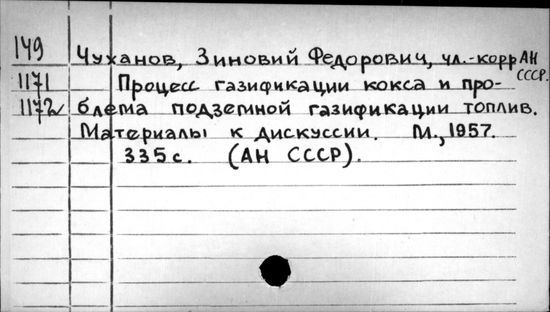 149 Чуханов, Зиновий Федорович, чл.-корр АН СССР.
1171 Процесс газификации кокса и про-
1172 блема подземной газификации топлив.
Материалы к дискуссии. М., 1957.
335 с. (АН СССР).